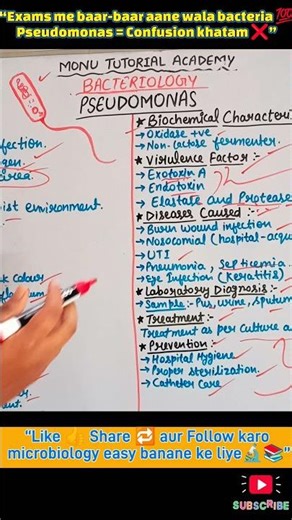 “Exams me baar-baar aane wala bacteria 💯
Pseudomonas = Confusion khatam ❌”
MONU TUTORIAL ACADEMY
BACTERIOLOGY
PSEUDOMONAS
★ Biochemical Characteri
→ Oxidase +ve
→ Non-Lactose fermenter.
★ Virulence Factor :-
→ Exotoxin A
→ Endotoxin
→ Elastase and Protease
★ Diseases Caused :-
→ Burn wound infection
→ Nosocomial (hospital-acqu
→ UTI
→ Pneumonia, Septicemia
→ Eye Infection (Keratitis)
★ Laboratory Diagnosis :-
→ Sample :- Pus, urine, sputum
★ Treatment :-
Treatment as per culture a
★ Prevention :-
→ Hospital Hygiene
→ Proper sterilization.
→ Catheter Care
fection.
gen.
ist environment.
colour
“Like 👍 Share 🔁 aur Follow karo
microbiology easy banane ke liye 🔬📚”
SUBSCRIBE